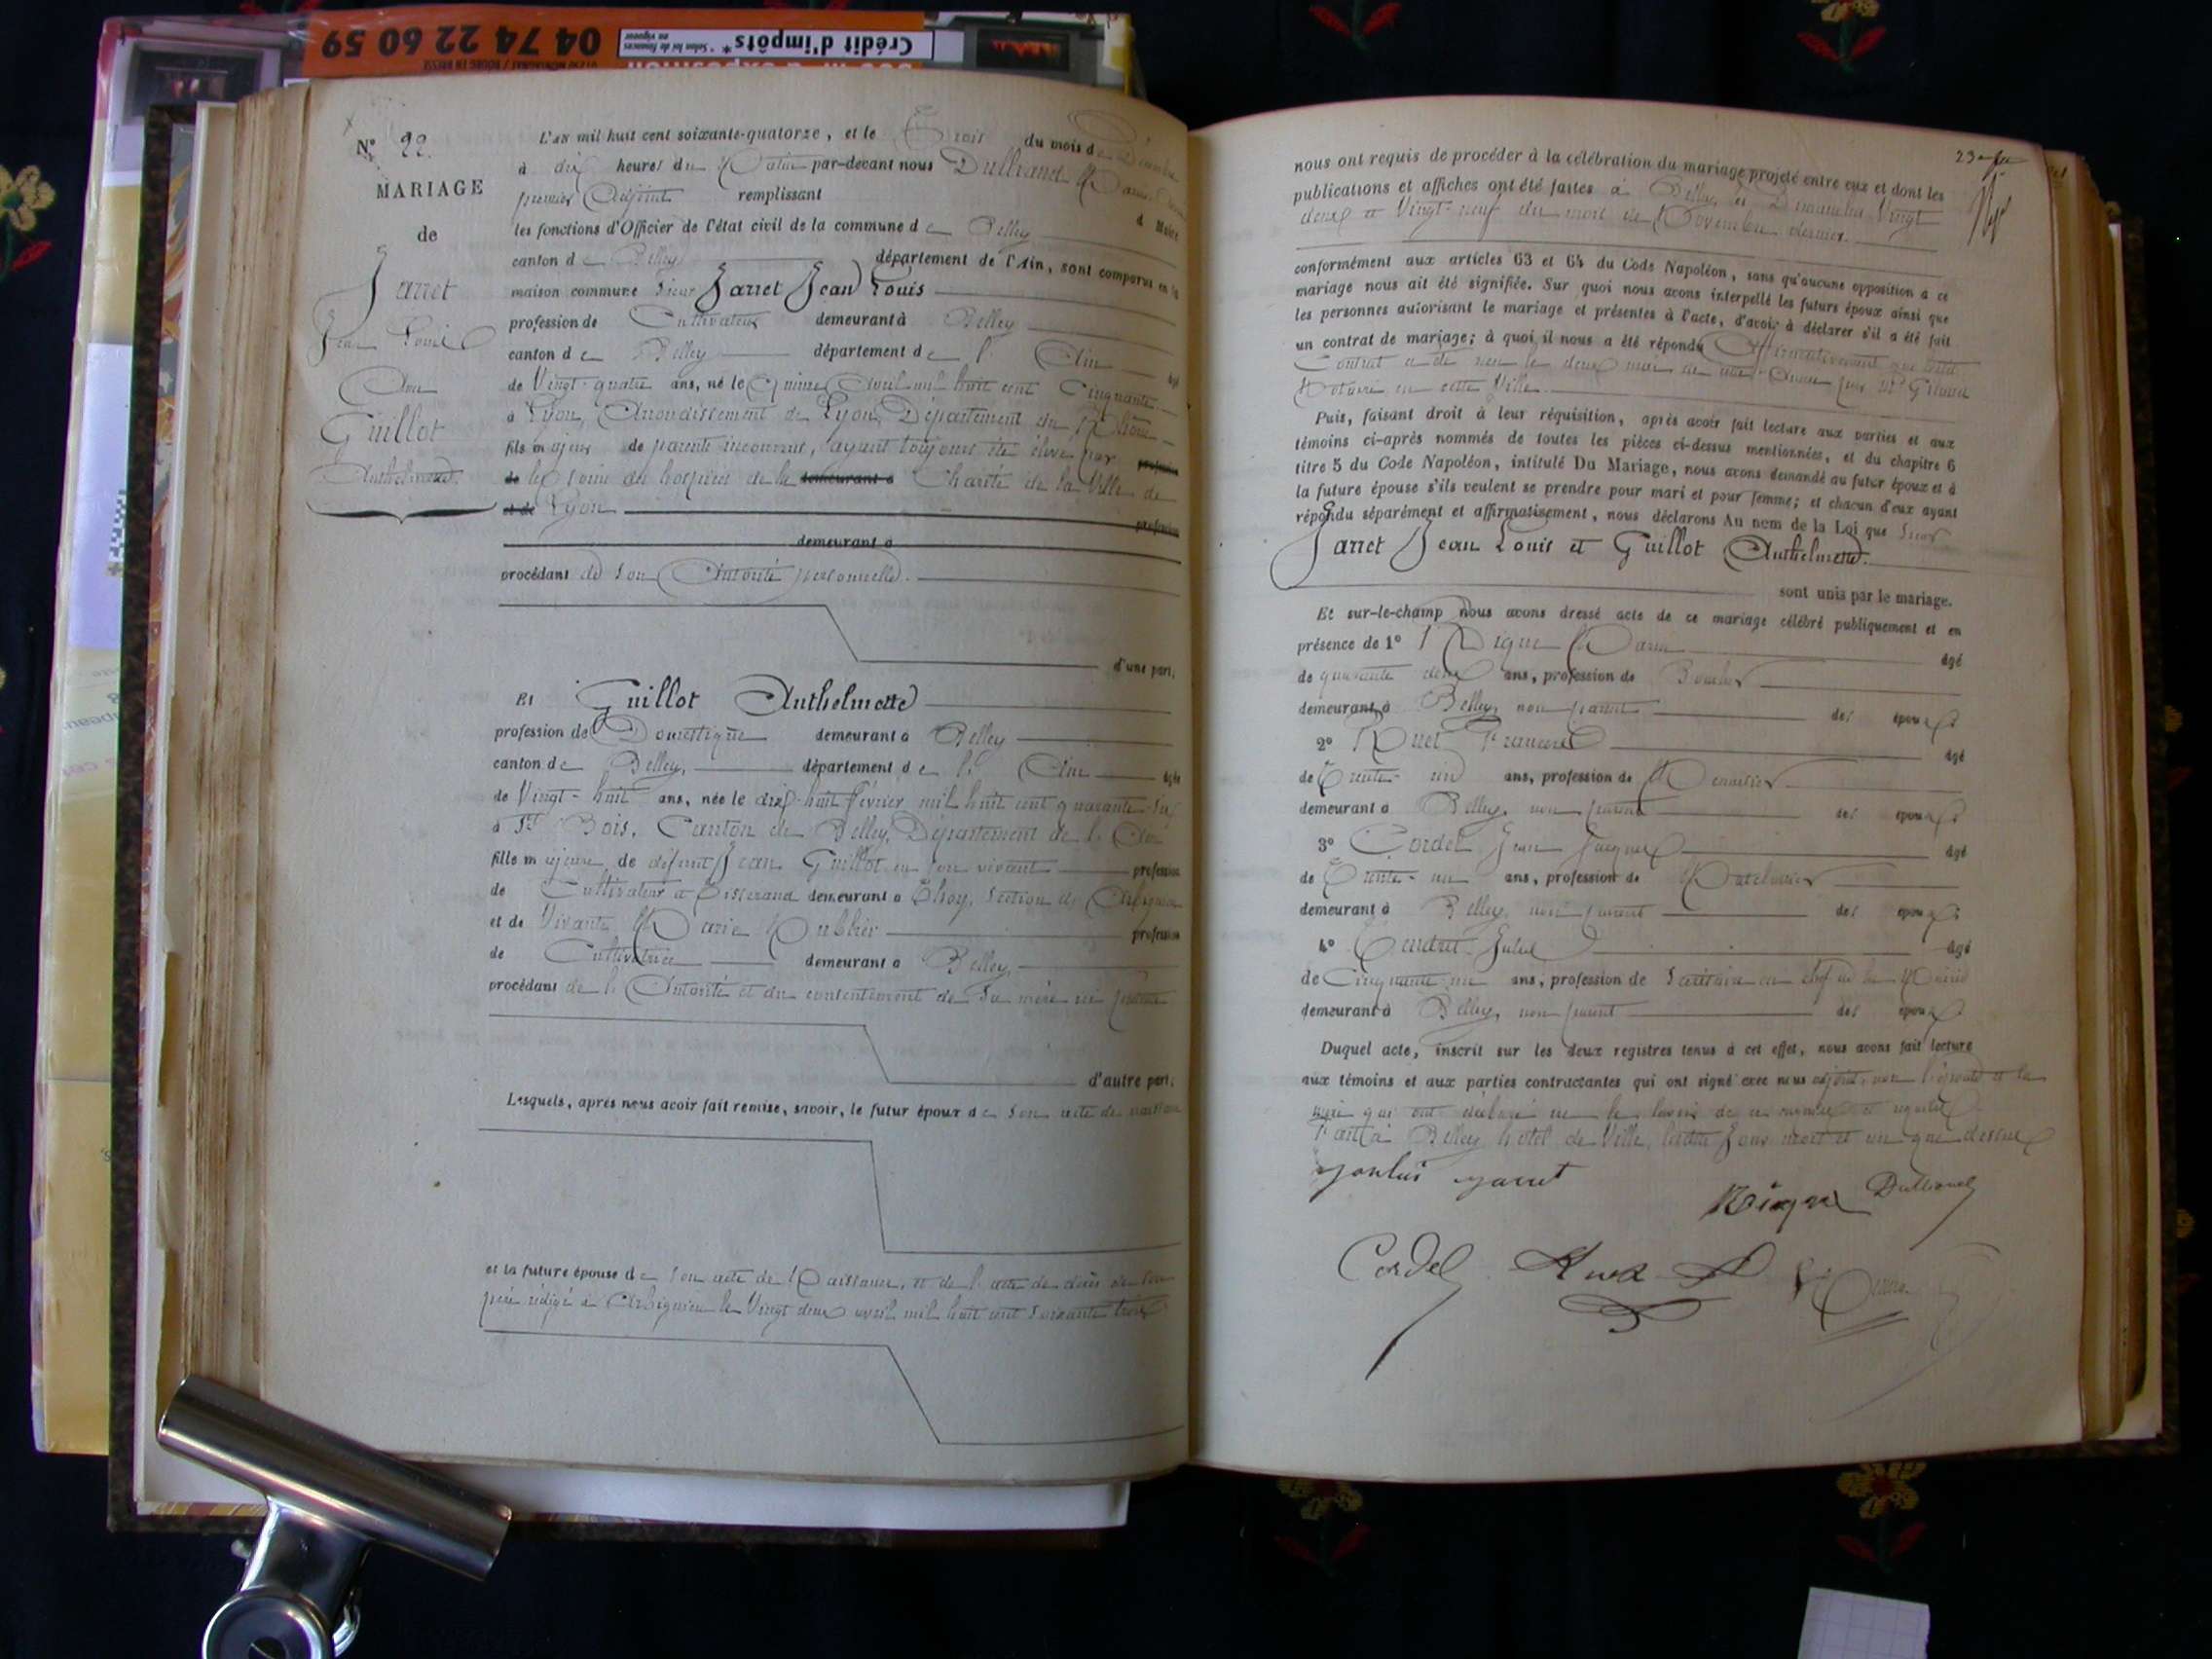 04 74 22 60 59
Crédit d'impôts*
* Selon loi de finances
en vigueur
N° 22
MARIAGE
de
Jarret
Jean Louis
Guillot
Anthelmette
L'an mil huit cent soixante-quatorze, et le Trois du mois de Décembre
à dix heures du Matin par-devant nous Dullianet
premier Adjoint remplissant
les fonctions d'Officier de l'état civil de la commune de Belley
canton de Belley département de l'Ain, sont comparus en la
maison commune Sieur Jarret Jean Louis
profession de Cultivateur demeurant à Belley
canton de Belley département de l'Ain âgé
de Vingt-quatre ans, né le Quinze Avril mil huit cent Cinquante
à Lyon, Arrondissement de Lyon, Département du Rhône
fils majeur de parents inconnus, ayant toujours été élevé par profession
de les soins des hospices de la demeurant à Charité de la Ville de
et de Lyon profession
demeurant à
procédant de son Autorité personnelle.
d'une part,
Et Guillot Anthelmette
profession de Domestique demeurant à Belley
canton de Belley, département de l'Ain âgée
de Vingt-huit ans, née le dix-huit février mil huit cent quarante-six
à St Bois, Canton de Belley, Département de l'Ain
fille majeure de défunt Jean Guillot en son vivant profession
de Cultivateur et Tisserand demeurant à Thoy, Section d'Arbignieu
et de Vivante Marie profession
de Cultivatrice demeurant à Belley,
procédant de l'Autorité et du consentement de sa mère ici présente
d'autre part.
Lesquels, après nous avoir fait remise, savoir, le futur époux de son acte de naissance
et la future épouse de son acte de Naissance, et de l'acte de décès de son
père rédigé à Arbignieu le Vingt deux avril mil huit cent soixante trois
nous ont requis de procéder à la célébration du mariage projeté entre eux et dont les
publications et affiches ont été faites à Belley, les Dimanches Vingt
deux et Vingt-neuf du mois de Novembre dernier.
conformément aux articles 63 et 64 du Code Napoléon, sans qu'aucune opposition à ce
mariage nous ait été signifiée. Sur quoi nous avons interpellé les futurs époux ainsi que
les personnes autorisant le mariage et présentes à l'acte, d'avoir à déclarer s'il a été fait
un contrat de mariage; à quoi il nous a été répondu Affirmativement que ledit
Contrat a été reçu le deux par Me
Notaire en cette Ville.
Puis, faisant droit à leur réquisition, après avoir fait lecture aux parties et aux
témoins ci-après nommés de toutes les pièces ci-dessus mentionnées, et du chapitre 6
titre 5 du Code Napoléon, intitulé Du Mariage, nous avons demandé au futur époux et à
la future épouse s'ils veulent se prendre pour mari et pour femme; et chacun d'eux ayant
répondu séparément et affirmativement, nous déclarons Au nom de la Loi que Sieur
Jarret Jean Louis et Guillot Anthelmette.
sont unis par le mariage.
Et sur-le-champ nous avons dressé acte de ce mariage célébré publiquement et en
présence de 1° âgé
de quarante deux ans, profession de
demeurant à Belley, non parent des époux
2° âgé
de Trente ans, profession de Menuisier
demeurant à Belley, non parent des époux
3° Cordel Jean Jacques âgé
de Trente-un ans, profession de Matelassier
demeurant à Belley, non parent des époux
4° âgé
de Cinquante-un ans, profession de Secrétaire en chef de la Mairie
demeurant à Belley, non parent des époux
Duquel acte, inscrit sur les deux registres tenus à cet effet, nous avons fait lecture
aux témoins et aux parties contractantes qui ont signé avec nous adjoint, non l'épouse et la
mère qui ont déclaré ne le savoir de ce enquis et requis
Fait à Belley hôtel de Ville, ledit Jour mois et an que dessus
Cordel